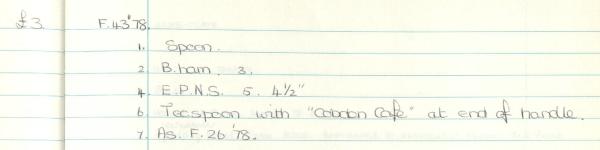 £3. F.43'78.
1. Spoon.
2 B.ham. 3.
4. E.P.N.S. 5. 4½"
6. Teaspoon with "Cobdon Cafe" at end of handle.
7. As. F.26 '78.